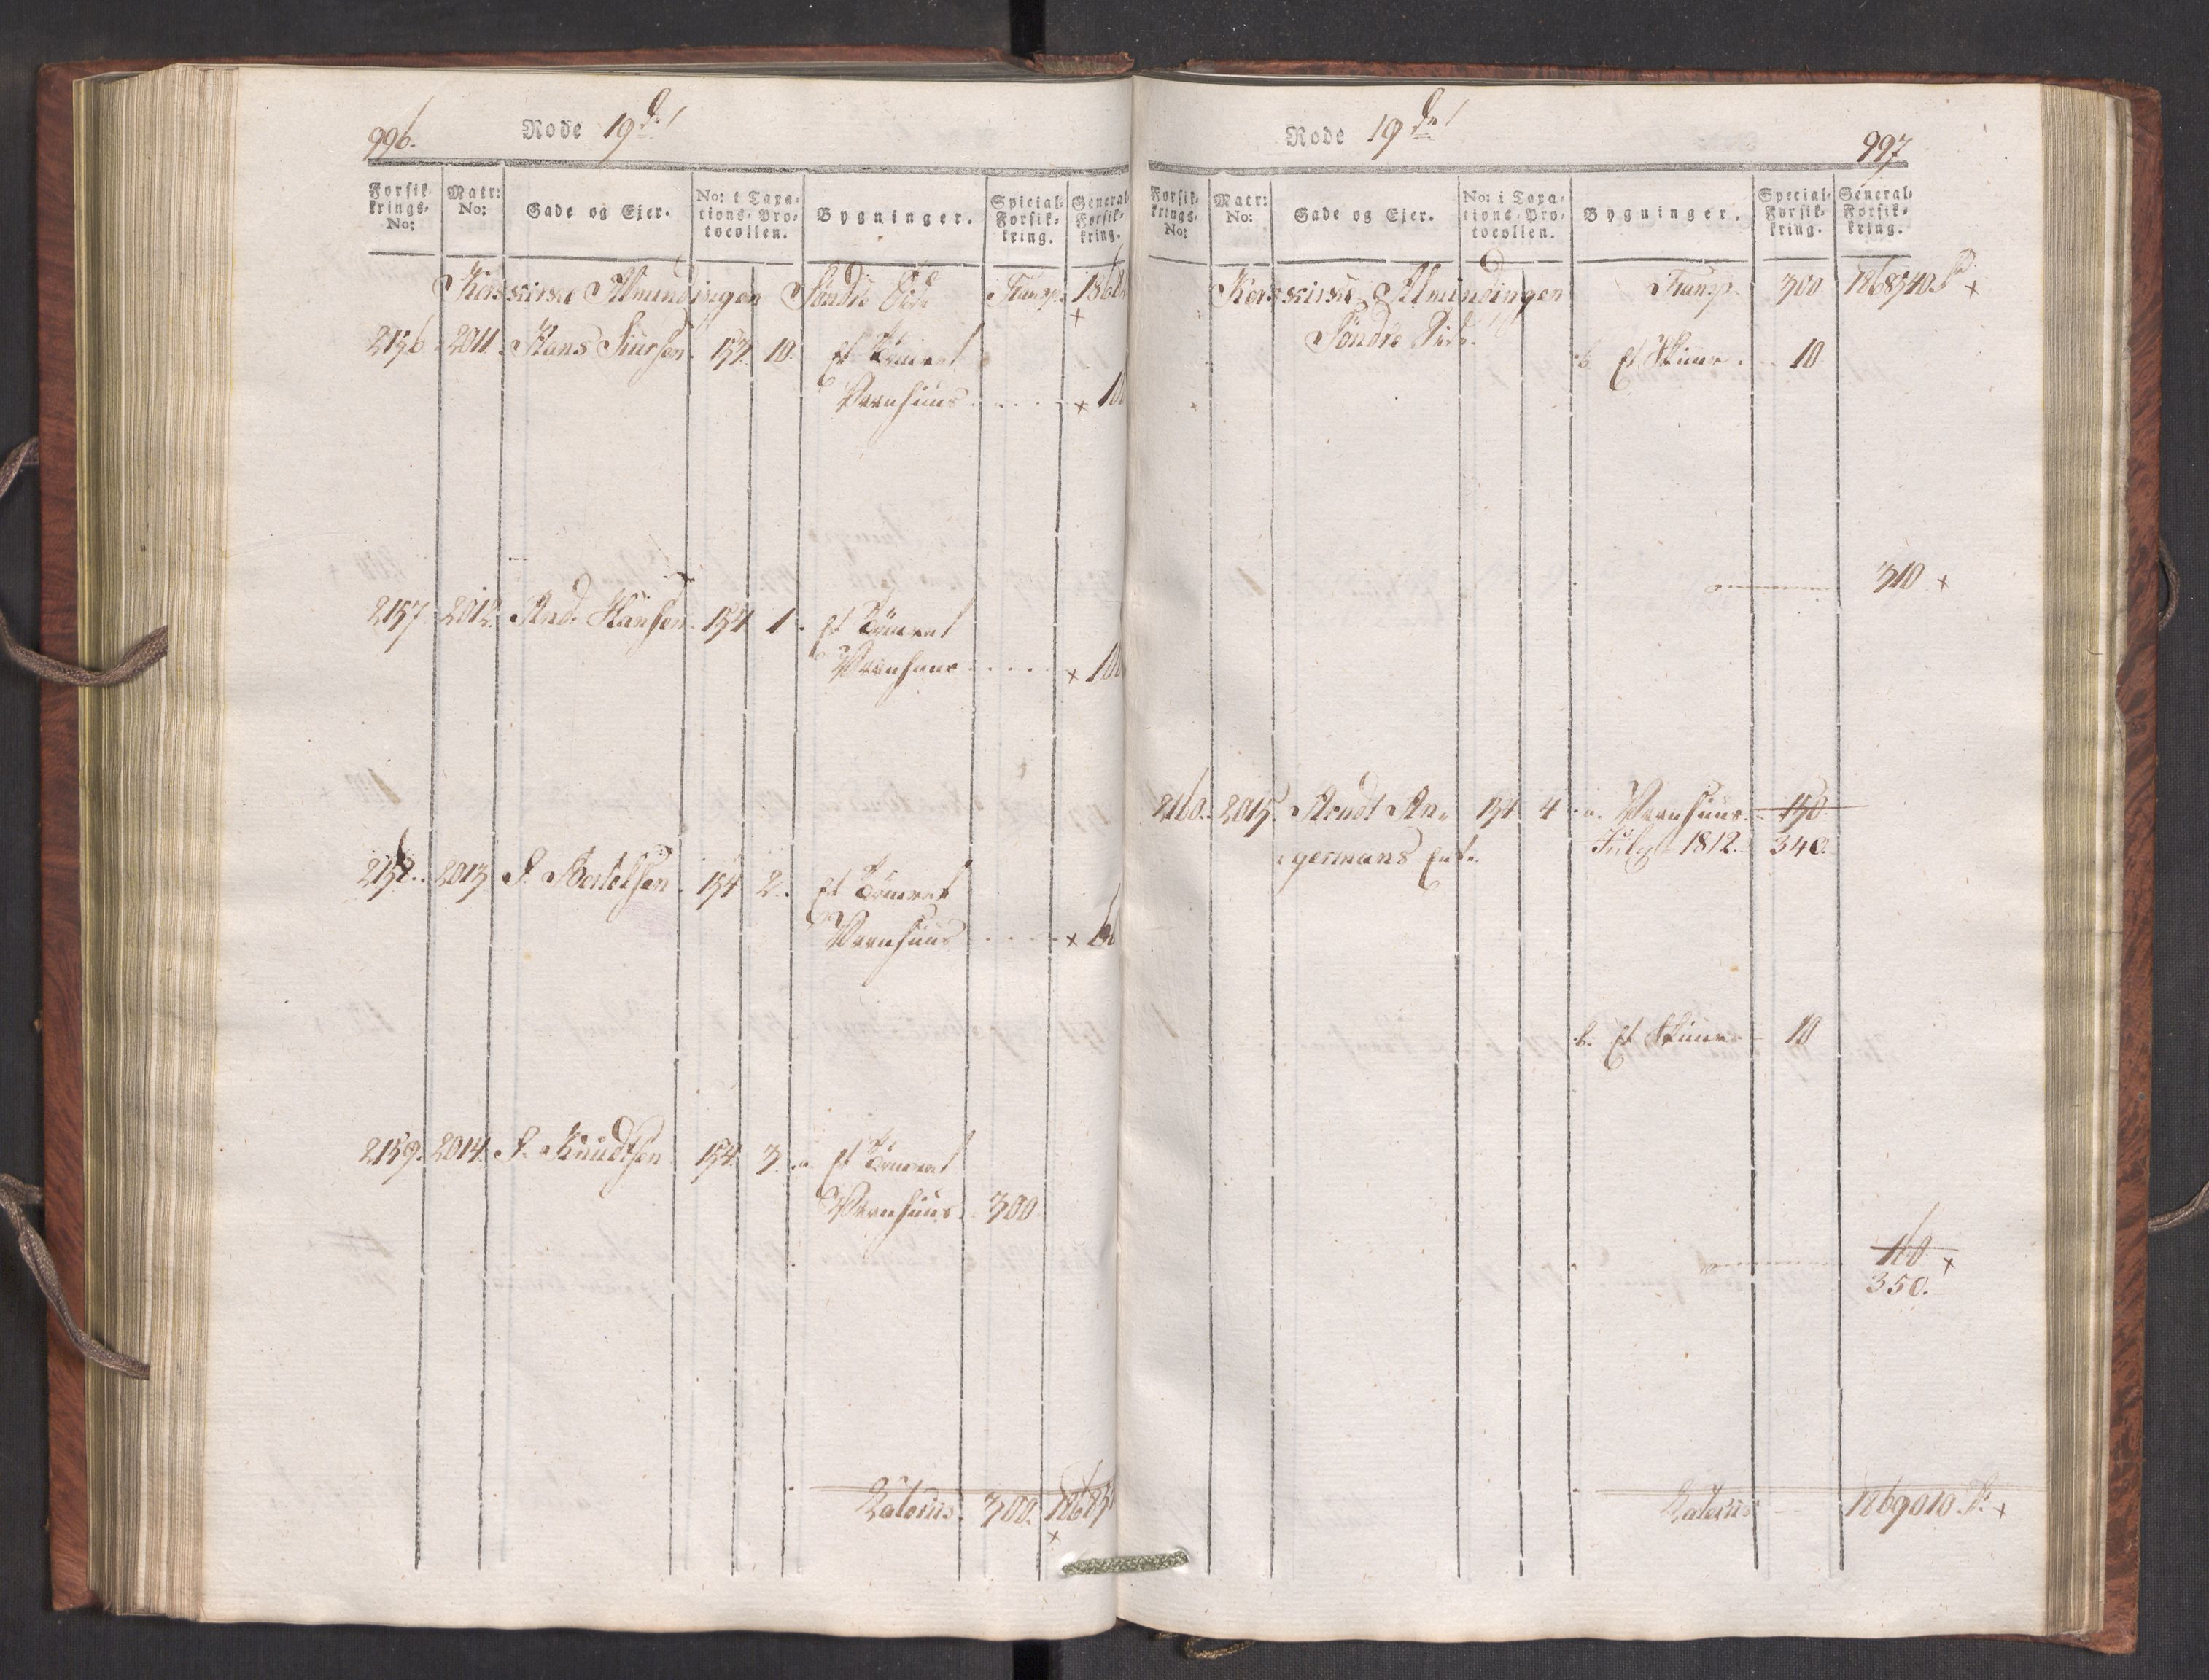 996.
Rode 19de
Forsik-krings-No: Matr: No: Gade og Ejer. No: i Taxa-tions-Pro-tocollen. Bygninger. Special-Forsik-kring. General-Forsik-kring.
Korskirke Almindingen Söndre Side Transp. 1868
2156 2011. Hans Siursen. 153. 10. Et Tömret
Vaanhuus . . . . × 10
2157. 2012. And: Hansen. 154 1. Et Tömret
Vaanhuus . . . . × 10
2158. 2013. S. Bertelsen. 154 2. Et Tömret
Vaanhuus . . . . ×
2159. 2014. S. Knudtsen 154. 3. a. Et Tömret
Vaanhuus. 300.
Lateris. 300.
Rode 19de
997
Forsik-krings-No: Matr: No: Gade og Ejer. No: i Taxa-tions-Pro-tocollen. Bygninger. Special-Forsik-kring. General-Forsik-kring.
Korskirke Almindingen Transp. 300 1868540 ×
Söndre Side.
b. Et Skuur. 10
310. ×
2160. 2015. Arndt An- 154 4. a. Vaanhuus. 150.
germans Enke. July 1812. 340.
b. Et Skuur 10
160. ×
350.
Lateris 1869010 ×